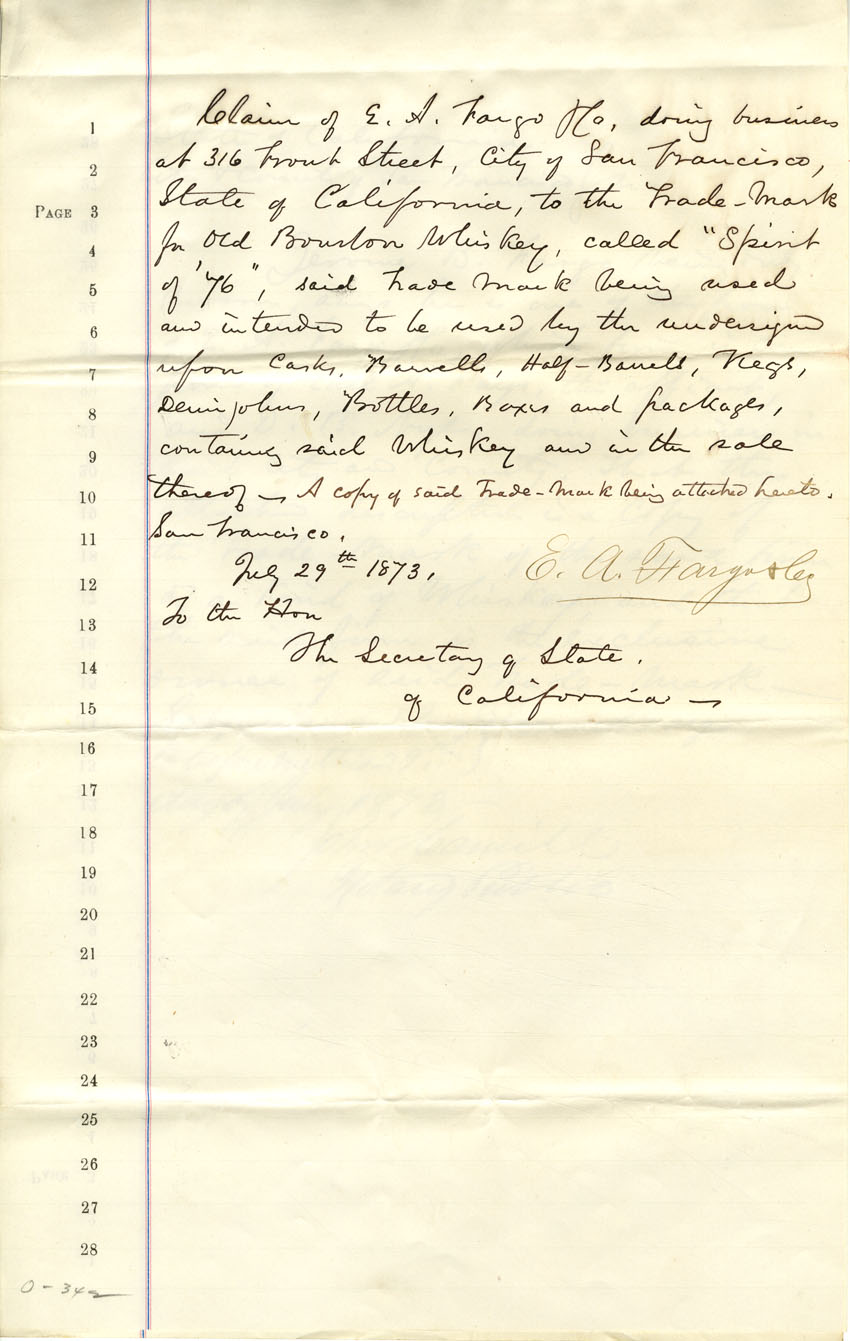 1 Claim of E. A. Fargo & Co, doing business
2 at 316 Front Street, City of San Francisco,
PAGE 3 State of California, to the Trade-Mark
4 for Old Bourbon Whiskey, called "Spirit
5 of '76", said Trade Mark being used
6 and intended to be used by the undersigned
7 upon Casks, Barrells, Half-Barrels, Kegs,
8 Demijohns, Bottles, Boxes and packages,
9 containing said Whiskey and in the sale
10 thereof — A copy of said Trade-Mark being attached hereto.
11 San Francisco.
12 July 29th 1873. E. A. Fargo & Co
13 To the Hon
14 The Secretary of State.
15 of California —
16
17
18
19
20
21
22
23
24
25
26
27
28
0-342